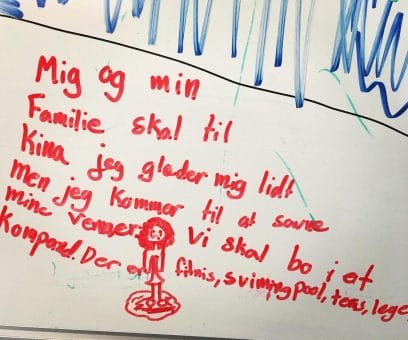 Mig og min
Familie skal til
Kina jeg glæder mig lidt
men jeg kommer til at savne
mine venner vi skal bo i et
Kompaund. Der er fitnis, svimingpool, tenis, lege